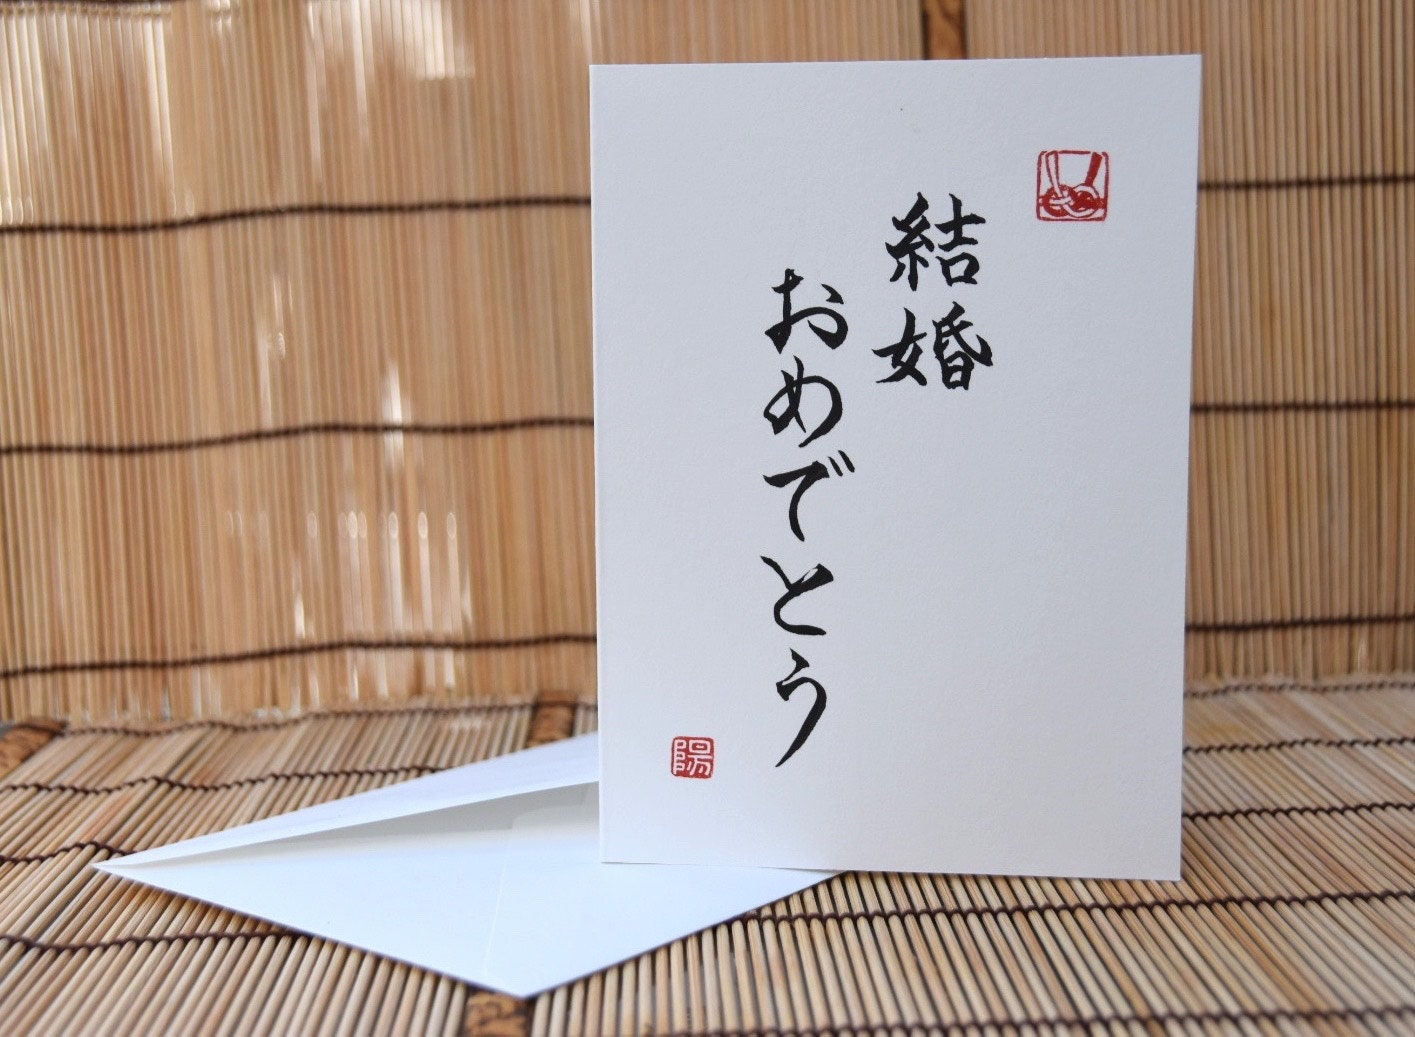 結婚
おめでとう
陽